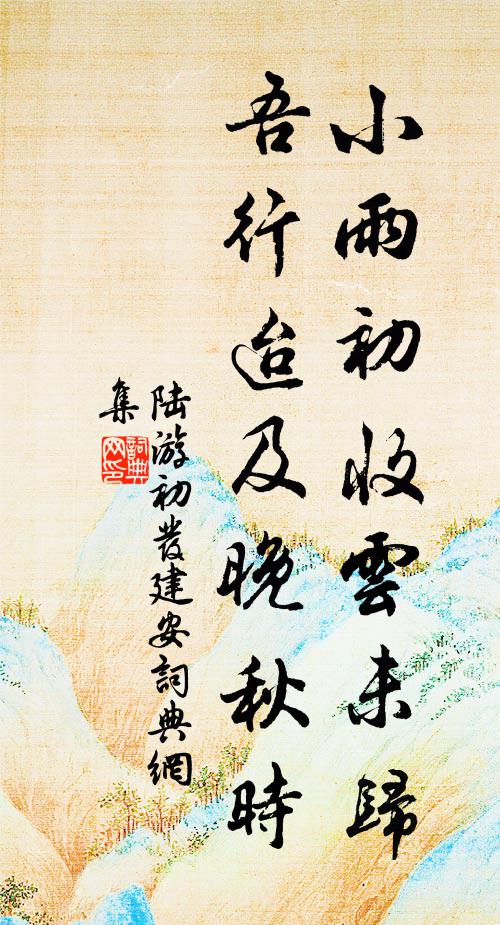 小雨初收雲未歸
吾行迨及晚秋時
陆游初發建安詞典網
集
詞典
网印